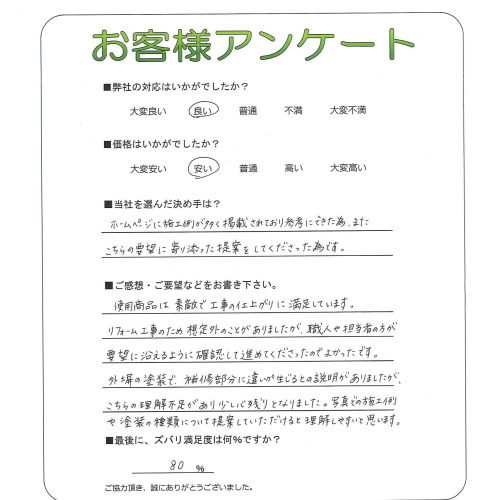 お客様アンケート
■弊社の対応はいかがでしたか？
大変良い 良い 普通 不満 大変不満
■価格はいかがでしたか？
大変安い 安い 普通 高い 大変高い
■当社を選んだ決め手は？
ホームページに施工例が多く掲載されており参考にできた為、また
こちらの要望に寄り添った提案をしてくださった為です。
■ご感想・ご要望などをお書き下さい。
使用商品は素敵で工事の仕上がりに満足しています。
リフォーム工事のため想定外のことがありましたが、職人や担当者の方が
要望に沿えるように確認して進めてくださったのでよかったです。
外塀の塗装で、補修部分に違いが生じるとの説明がありましたが、
こちらの理解不足があり少し心残りとなりました。写真での施工例
や塗装の種類について提案していただけると理解しやすいと思います。
■最後に、ズバリ満足度は何%ですか？
80 %
ご協力頂き、誠にありがとうございました。